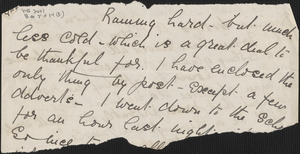 Raining hard - but much
less cold - which is a great deal to
be thankful for. I have enclosed the
only thing by post - except a few
adverts - I went down to the
for an hour last night
So nice to